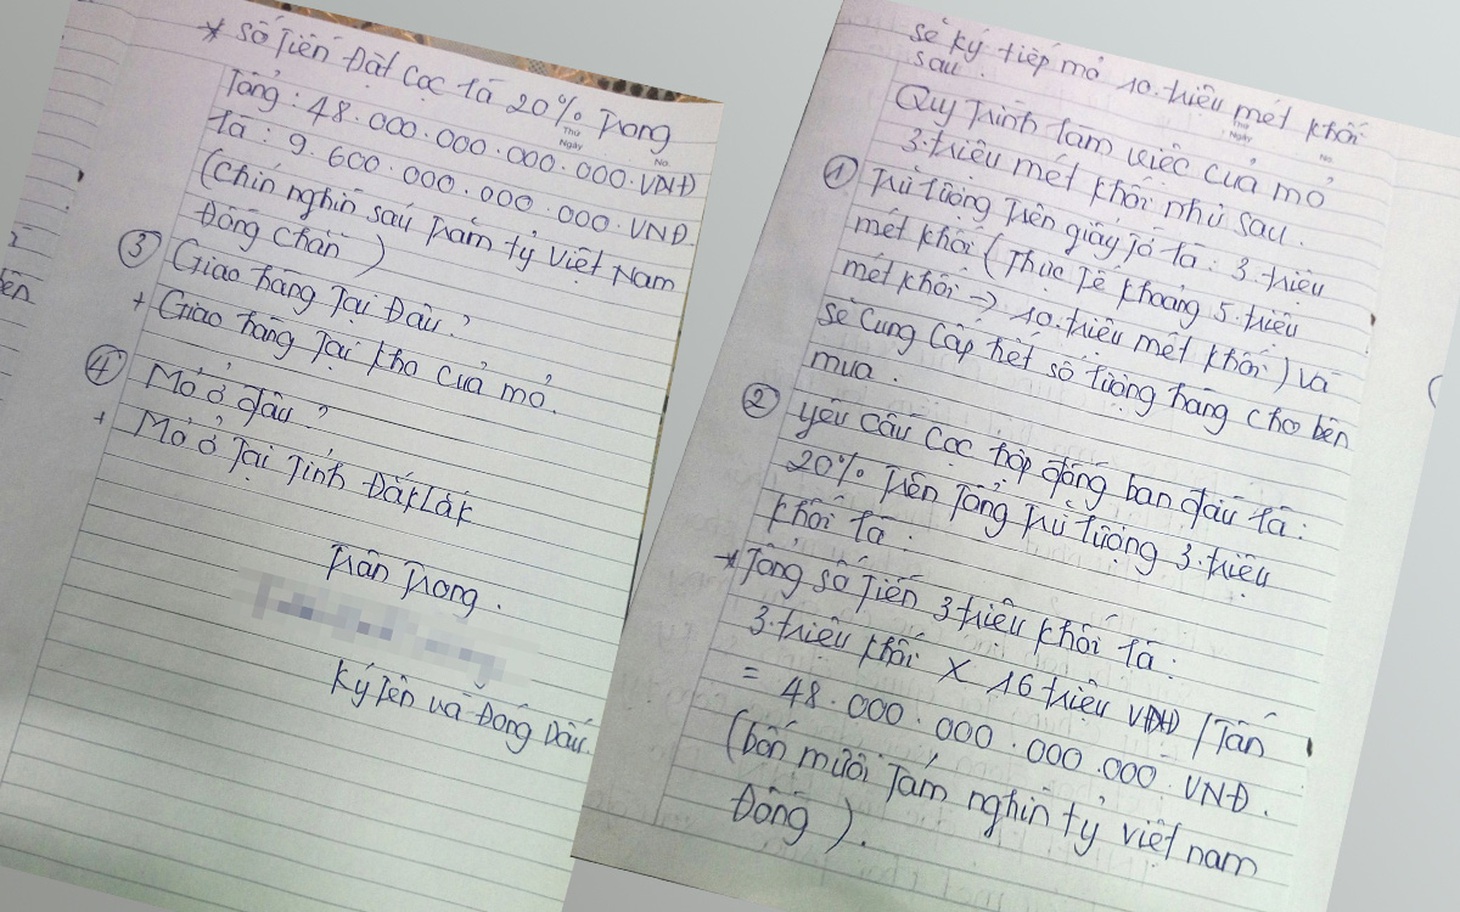 * Số Tiền Đặt Cọc là 20% Trong
Thứ
Ngày
No.
Tổng: 48.000.000.000.000.VNĐ
là: 9.600.000.000.000.VNĐ
(Chín nghìn sáu Trăm tỷ Việt Nam
Đồng chẵn)
③ Giao hàng Tại Đâu?
+ Giao hàng Tại kho của mỏ.
④ Mỏ ở đâu?
+ Mỏ ở Tại Tỉnh ĐắkLắk
Trân Trọng.
Ký Tên và Đóng Dấu.
ì
bên
sẽ ký tiếp mỏ 10.triệu mét khối
sau.
Thứ
Ngày
No.
Quy Trình làm việc của mỏ
3.triệu mét khối như sau.
① Trữ lượng Trên giấy Tờ là: 3.triệu
mét khối (Thực Tế khoảng 5.triệu
mét khối → 10.triệu mét khối) và
sẽ Cung Cấp hết số lượng hàng cho bên
mua.
② yêu cầu cọc hợp đồng ban đầu là:
20% Trên Tổng Trữ lượng 3.triệu
khối là:
* Tổng số Tiền 3triệu khối là:
3.triệu khối X 16 triệu VNĐ/Tấn
= 48.000.000.000.000.VNĐ.
(bốn mươi Tám nghìn tỷ việt nam
Đồng).